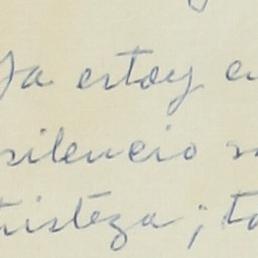 Ya estoy
silencio
tristeza;